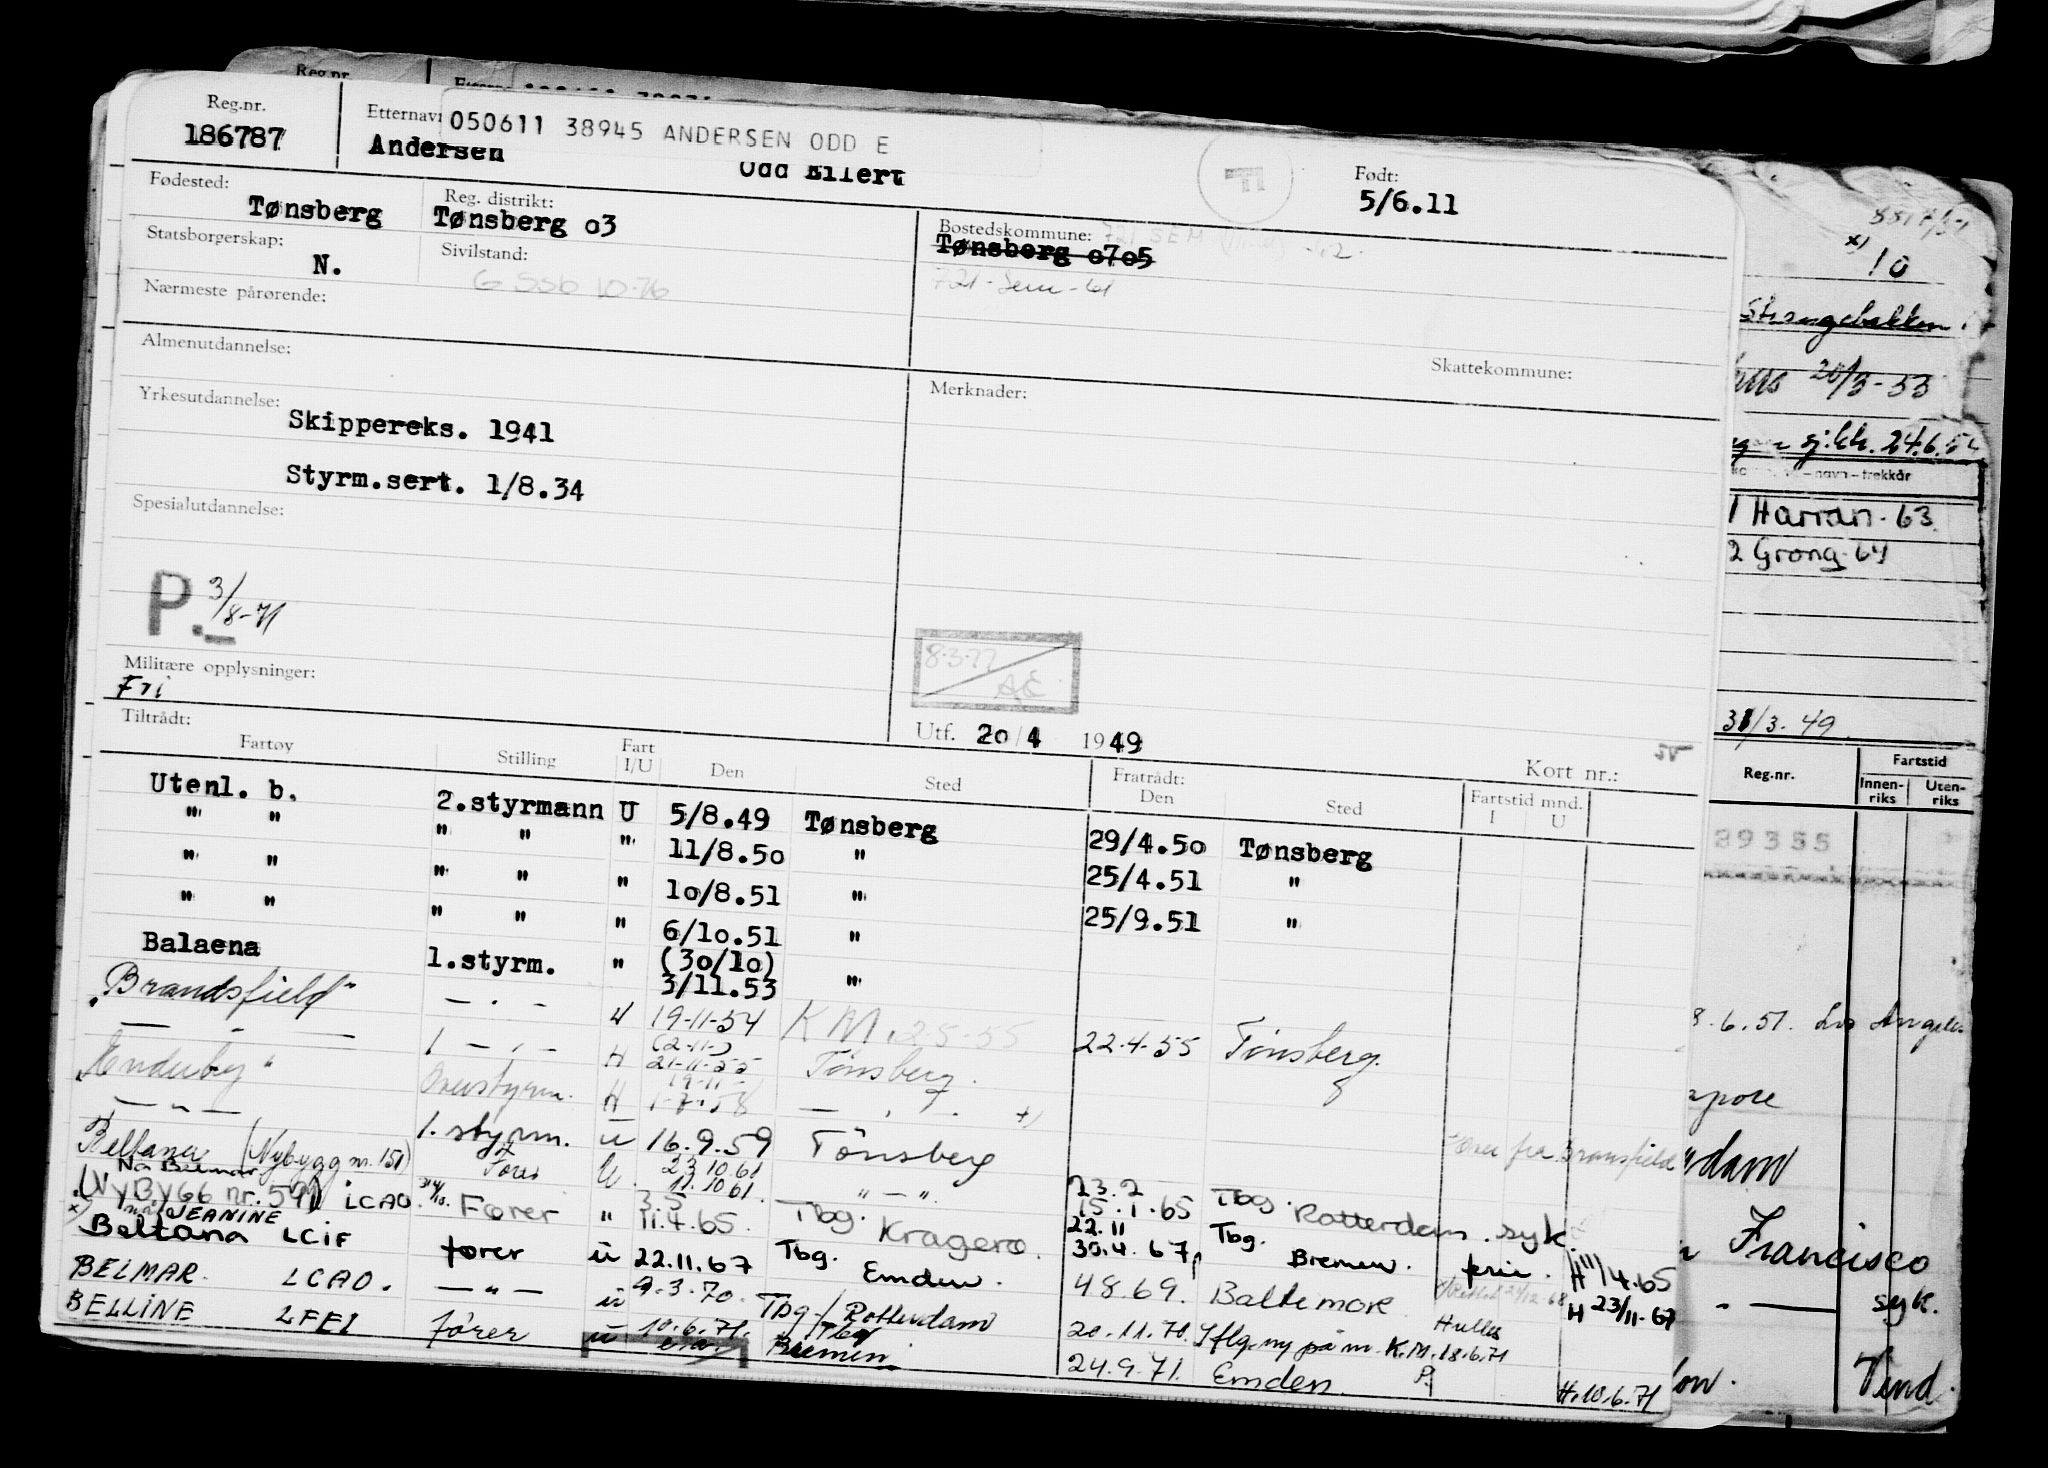 Reg.nr.
186787
Etternavn
050611 38945 ANDERSEN ODD E
Andersen
Odd Ellert
Født:
5/6.11
Fødested:
Tønsberg
Reg. distrikt:
Tønsberg o3
Bostedskommune: 721 SEM
Tønsberg o7o5
721 - Sem - 61
Statsborgerskap:
N.
Sivilstand:
G SSB 10.76
Nærmeste pårørende:
Almenutdannelse:
Skattekommune:
Yrkesutdannelse:
Skippereks. 1941
Styrm.sert. 1/8.34
Merknader:
Spesialutdannelse:
P. 3/8-71
8.3.77
AE
Militære opplysninger:
Fri
Utf. 20/4 1949
Kort nr.:
Tiltrådt:
Fartøy Stilling Fart I/U Den Sted Fratrådt: Den Sted Fartstid mnd. I U
Utenl. b. 2.styrmann U 5/8.49 Tønsberg 29/4.50 Tønsberg
" " " " " 11/8.50 " 25/4.51 "
" " " " " 10/8.51 " 25/9.51 "
" " " " " 6/10.51 "
Balaena 1.styrm. " (30/10) 3/11.53 "
"Bransfield" — . — U 19-11-54 K M. 2-5-55 22.4-55 Tønsberg.
— " — 1 — . — (2-11-) 21-11-55 Tønsberg.
"Enderby" Overstyrm. 19-11- 1-7-58 — " —
— " — 1. styrm. U 16.9.59 Tønsberg
Beltana (Nybygg nr. 151) Fører U. 23.10.61 11.10.61 " — " 23.2 15.1.65 Tbg. Rotterdam. syk.
Nå Belmar
NYBYGG nr. 591 LCAO Fører " 3.5 11.4.65. Tbg. Kragerø. 22.11 30.4.67 Tbg. Bremen. ferie. H 11/4.65
nå JEANINE
x) Beltana LCIF fører U 22.11.67 Tbg. Emden. 4.8.69. Baltimore H 23/11-67
BELMAR. LCAO. — " — U 9.3.70. Tbg-/Rotterdam 20.11.70. Iflg. ny på m. K.M. 18.6.71
BELLINE LFEI fører U 10.6.71. Tbg Bremen 24.9.71. Emden. P. H. 10.6.71
Reg.nr.
x) 10
20/3-53
sj.kk. 24.6.54
navn – trekkår
Harran - 63
2 Grong - 64
31/3. 49
Reg.nr.
Fartstid
Innen-riks
Uten-riks
39355
8.6.51. Los Angeles
apore
dam
Francisco
syk.